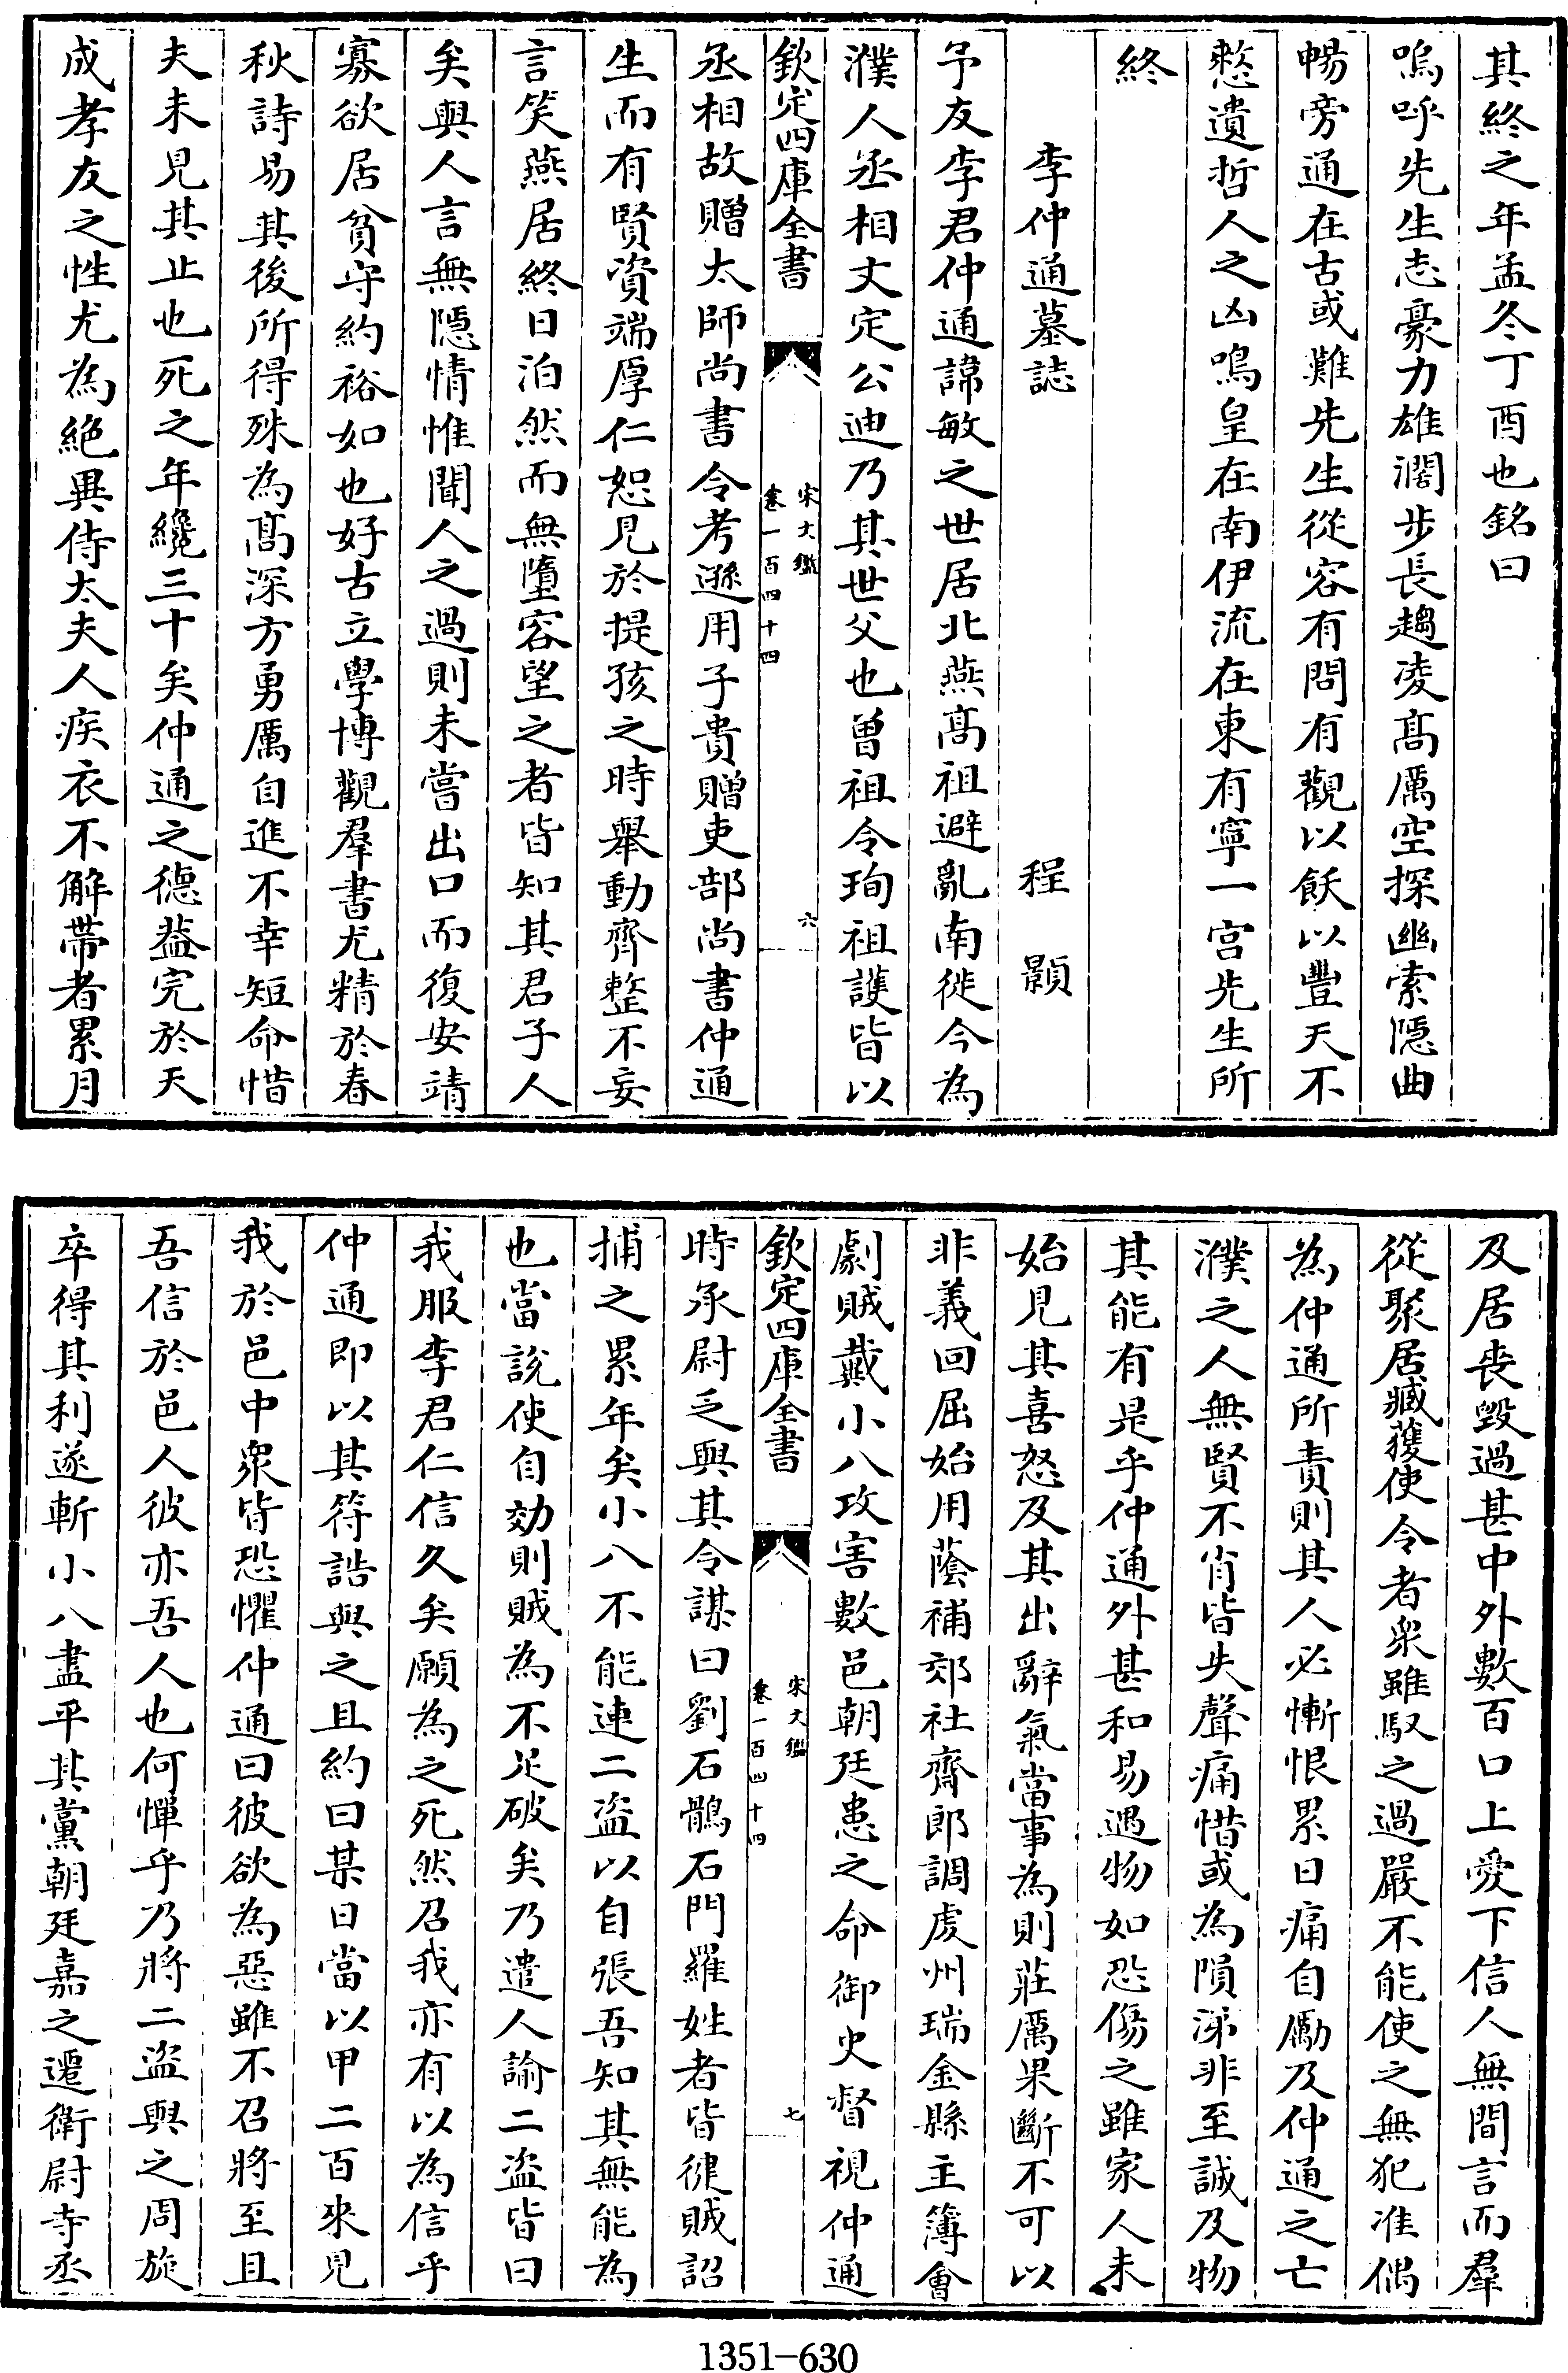 其終之年孟冬丁酉也銘曰
嗚呼先生志豪力雄濶步長趨凌髙厲空探幽索隠曲
暢旁通在古或難先生從容有問有觀以飫以豐天不
憗遺哲人之凶鳴臯在南伊流在東有寧一宫先生所
終
李仲通墓誌 程顥
予友李君仲通諱敏之世居北燕髙祖避亂南徙今為
濮人丞相文定公迪乃其世父也曽祖令珣祖護皆以
欽定四庫全書
宋文鑑
卷一百四十四
六
丞相故贈太師尚書令考遜用子貴贈吏部尚書仲通
生而有賢資端厚仁恕見於提孩之時舉動齊整不妄
言笑燕居終日泊然而無墮容望之者皆知其君子人
矣與人言無隠情惟聞人之過則未嘗出口而復安靖
寡欲居貧守約裕如也好古立學博觀羣書尤精於春
秋詩易其後所得殊為髙深方勇厲自進不幸短命惜
夫未見其止也死之年纔三十矣仲通之徳益完於天
成孝友之性尤為絶異侍太夫人疾衣不解帶者累月
及居喪毀過甚中外數百口上愛下信人無間言而羣
從聚居臧獲使令者衆雖馭之過嚴不能使之無犯准偶
為仲通所責則其人必慚恨累日痛自勵及仲通之亡
濮之人無賢不肖皆失聲痛惜或為隕涕非至誠及物
其能有是乎仲通外甚和易遇物如恐傷之雖家人未
始見其喜怒及其出辭氣當事為則莊厲果斷不可以
非義回屈始用蔭補郊社齋郎調䖍州瑞金縣主簿會
劇賊戴小八攻害數邑朝廷患之命御史督視仲通
欽定四庫全書
宋文鑑
卷一百四十四
七
時承尉乏與其令謀曰劉石鶻石門羅姓者皆健賊詔
捕之累年矣小八不能連二盜以自張吾知其無能為
也當説使自効則賊為不足破矣乃遣人諭二盜皆曰
我服李君仁信久矣願為之死然召我亦有以為信乎
仲通即以其符誥與之且約曰某日當以甲二百來見
我於邑中衆皆恐懼仲通曰彼欲為惡雖不召將至且
吾信於邑人彼亦吾人也何憚乎乃將二盜與之周旋
卒得其利遂斬小八盡平其黨朝廷嘉之遷衛尉寺丞
1351-630